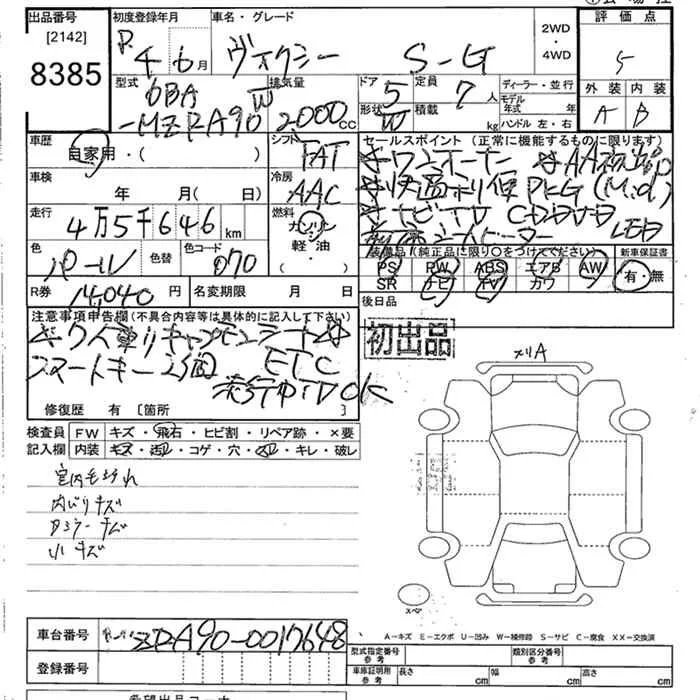 出品番号
[2142]
8385
初度登録年月
R 4 6月
車名・グレード
ヴォクシー S-G
2WD
4WD
評価点
5
外装 内装
A B
型式
6BA
-MZRA90W
排気量
2000cc
ドア 5
形状 W
定員 7 人
積載 kg
ディーラー・並行
モデル年式 年
ハンドル 左・右
車歴
自家用・( )
シフト
FAT
車検
年 月( 日)
冷房
AAC
走行
4万5千646km
燃料
ガソリン
軽・油
・( )
色
パール
色替
色コード
070
R券 14,040 円
名変期限 月 日
セールスポイント(正常に機能するものに限ります)
☆ワンオーナー ☆AA初出品
☆快適利便PKG(Mid)
☆ナビTV CDDVD
前席シートヒーター LED
装備品(純正品に限り○をつけてください)
PS PW ABS エアB AW
SR ナビ TV カワ
新車保証書
有・無
後日品
初出品
注意事項申告欄(不具合内容等は具体的に記入して下さい)
☆7人乗りキャプテンシート☆
スマートキー2個 ETC
走行中TVOK
修復歴 有 [箇所 ]
検査員
記入欄
FW キズ・飛石・ヒビ割・リペア跡・×要
内装 キズ・汚レ・コゲ・穴・スレ・キレ・破レ
室内毛汚れ
内ばりキズ
Dミラーキズ
小キズ
メリA
スペア
A-キズ E-エクボ U-凹み W-補修跡 S-サビ C-腐食 XX-交換済
車台番号 ZRA90-0017648
登録番号
型式指定番号
参考
類別区分番号
参考
車庫証明用
参考
長さ cm
幅 cm
高さ cm
希望出品コーナー